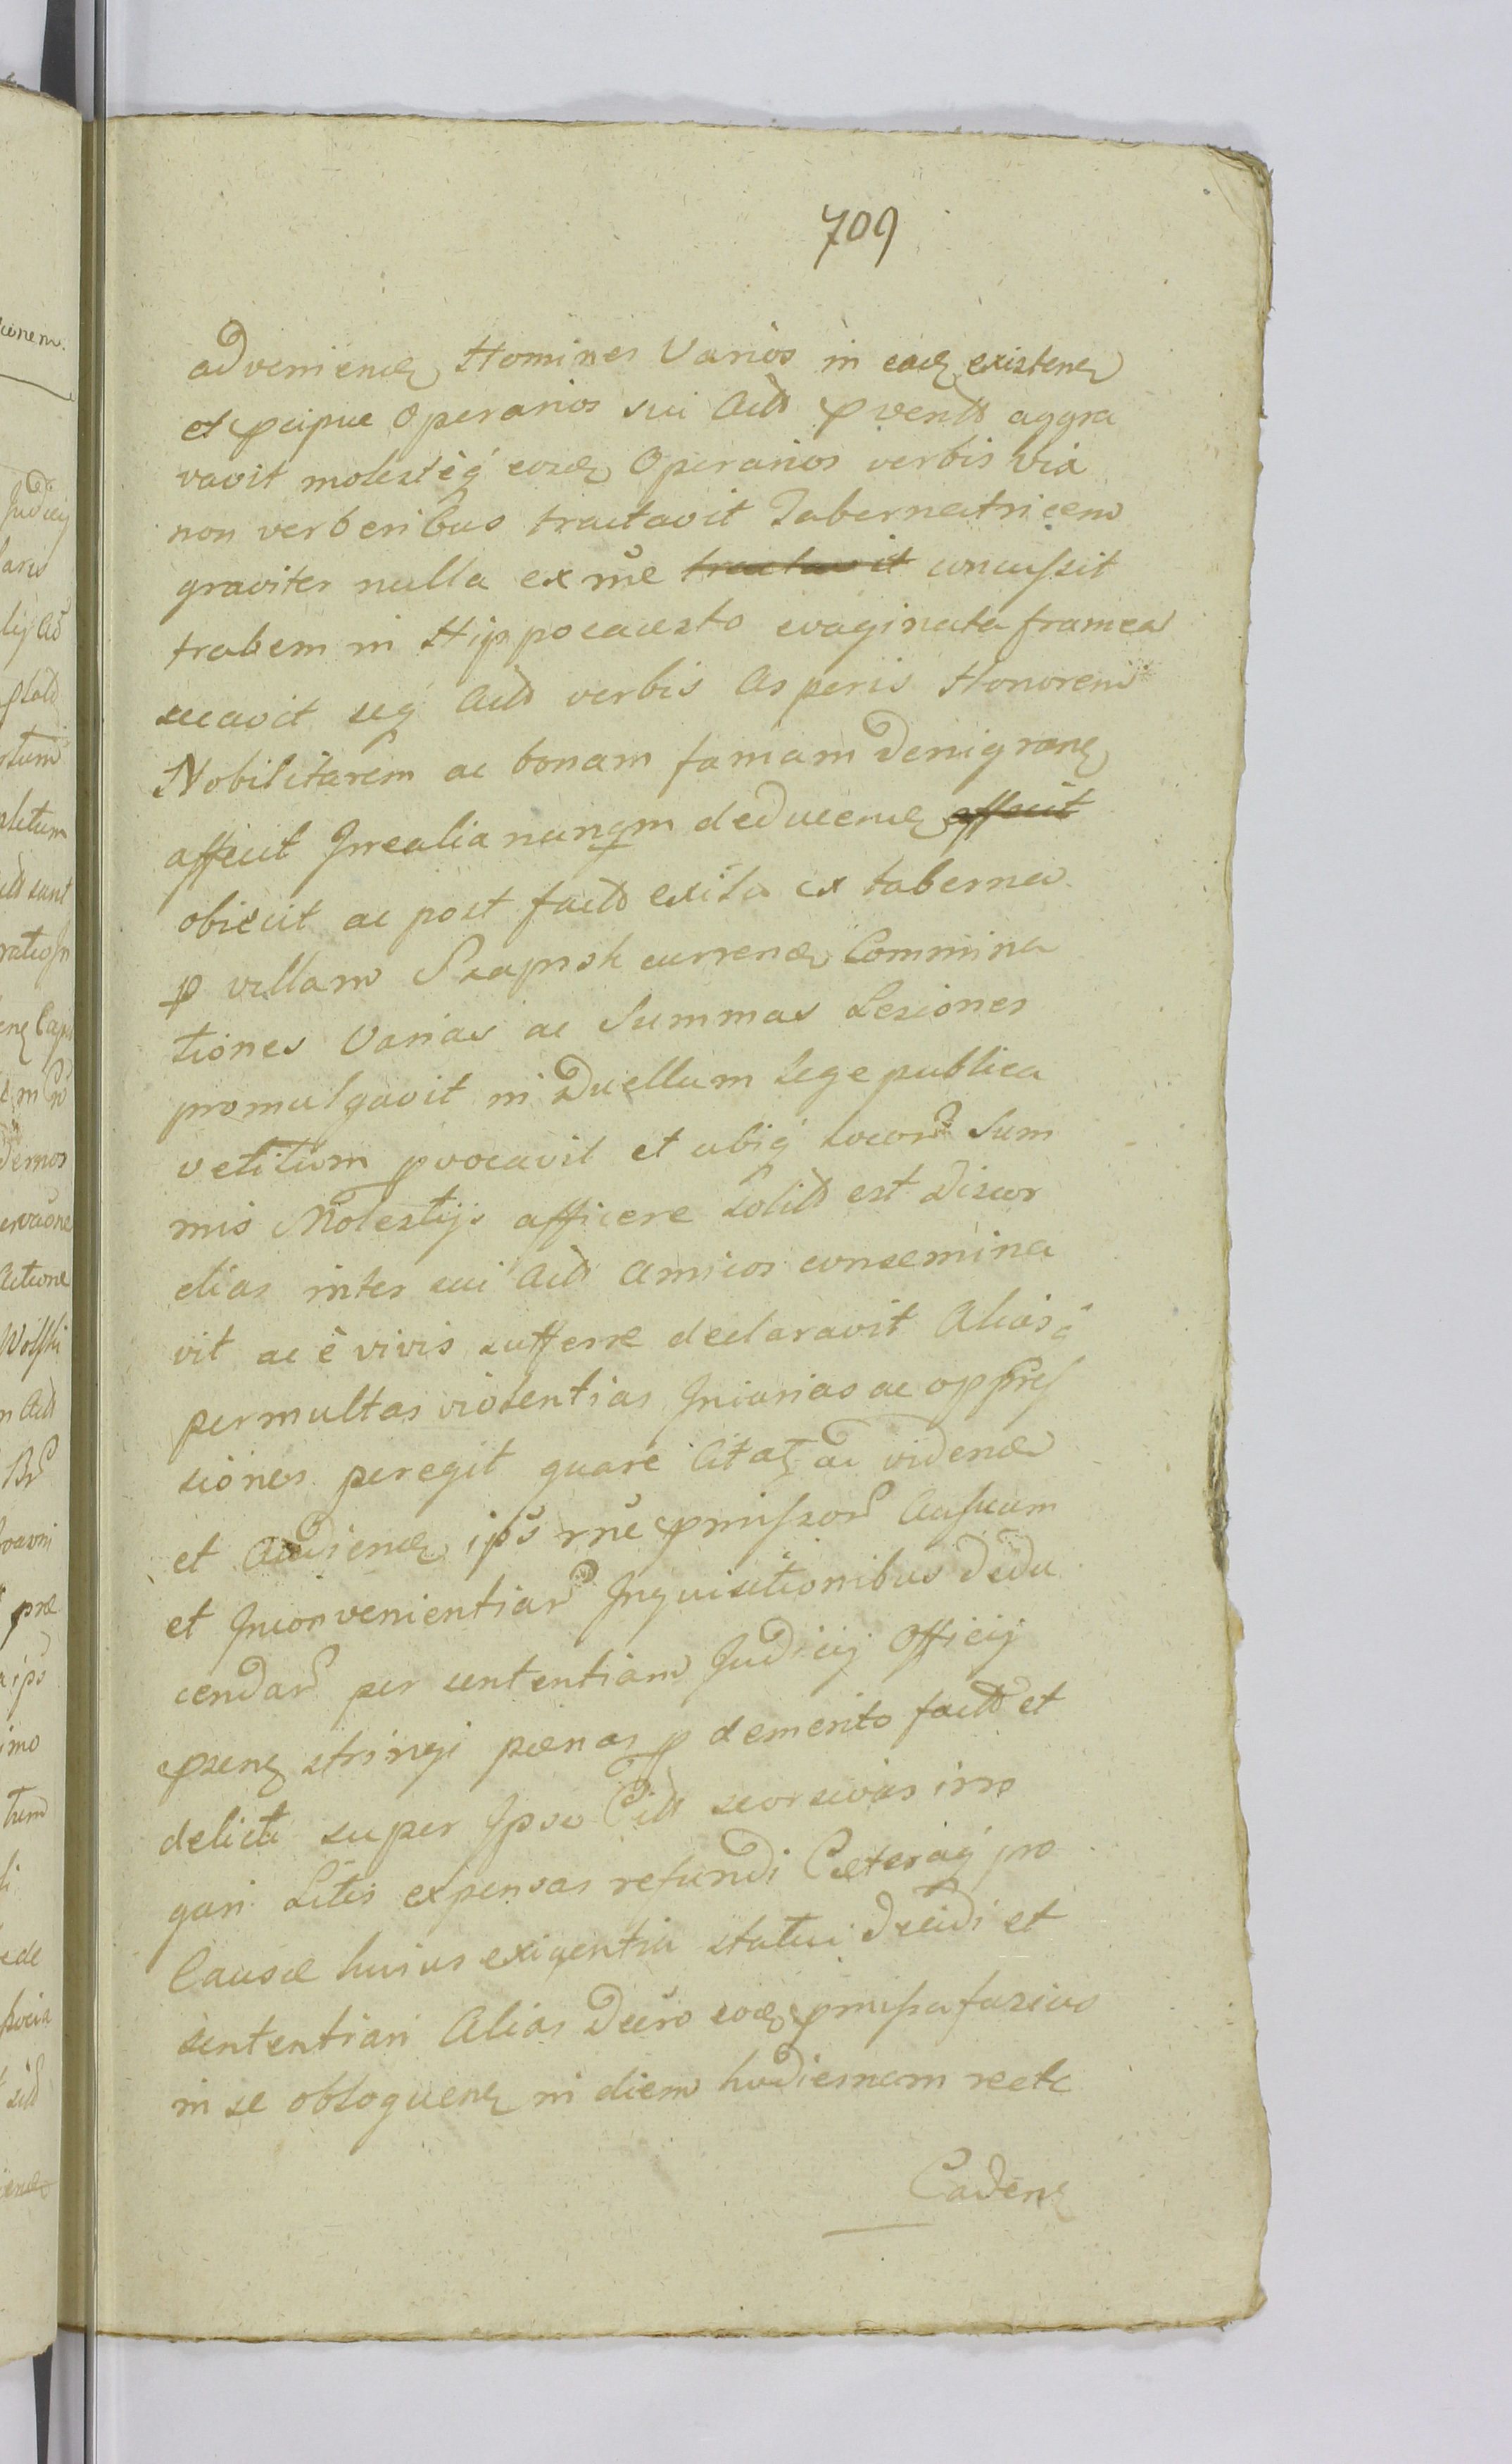 709
advenienđ Homines Varios in eadē existenē
et p̄cipue Operarios sui Actō p ventō aggra
vavit molesteq́ eosdē Operarios verbis via
non verberibus tractavit Tabernatricem
graviter nulla ex r̃ne tractavit concussit
trabem in Hippocausto evaginata framea
secavit seq́ Actō verbis Asperis Honorem
Nobilitarem ac bonam famam denigranē
affecit Irrealia nunqm deducenđ affecit
obiecit ac post factō exita ex taberna
p villam Szapisk currenđ Commina
tiones Varias ac Summas Lesiones
promulgavit in Duellum lege publica
vetitum pvocavit et ubiq́ locor̃ Sum
mis Molestijs afficere solitō est Discor
dias inter sui Actō Amicos consemina
vit ac è vivis sufferre declaravit Aliasq́
permultas violentias Iniurias ac oppres
siones peregit quare Citatē ad videnđ
et Audienđ ips̃ r̃ne p̄missor̃ Ausuum
et Inconvenientiar̃ Inquisitionibus dedu
cendar̃ per sententiam Judicij Officij
p̄senē stringi pœnas p demerito factō et
delicti super Ipso Citō seorsivas irro
gari Litis expensas refundi Cæteraq́ pro
Causæ huius exigentia statui decidi et
sententiari Alias Decr̃o eodē p̄missa fazius
in se obloquenē in diem hodiernam recte
Cadenē